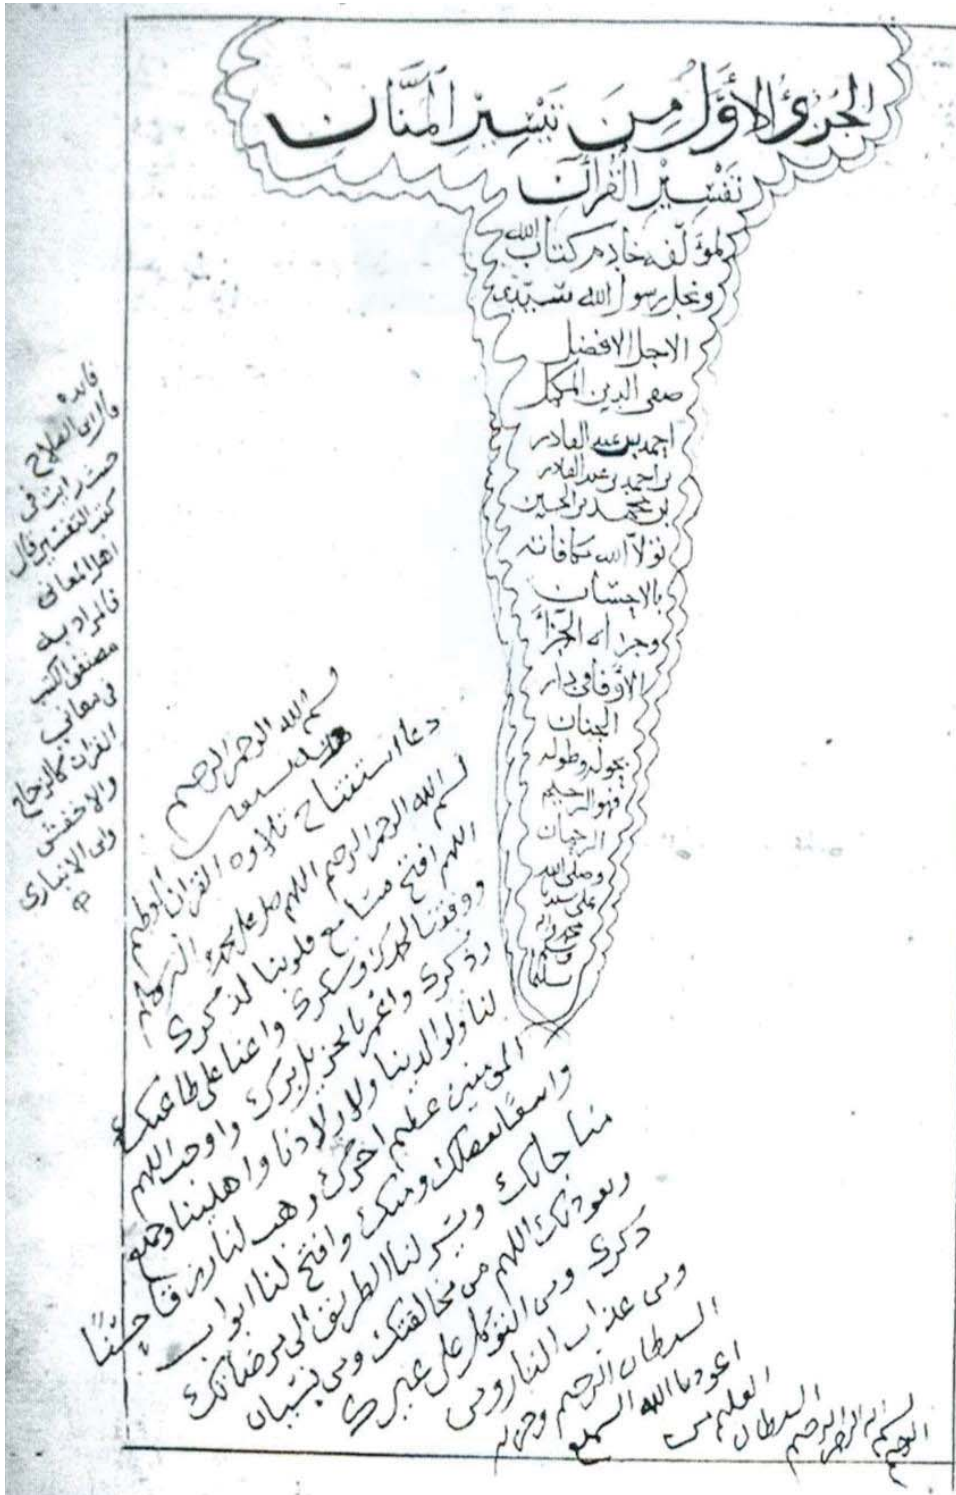 الجزؤ الاول من تيسير المنان
تفسير القرآن
لمؤلفه خادم كتاب الله
ونجل رسول الله سيدي
الاجل الافضل
صفي الدين المكمل
احمد بن عبد القادر
بن احمد بن عبد القادر
بن محمد بن الحسين
تولا الله مكافاته
بالاحسان
وجزاه الجزاء
الاوفا في دار
الجنان
بحوله وطوله
فهو الرحيم
الرحمان
وصلى الله
على سيدنا
محمد وآله
وسلم
فايده
قال ابن الصلاح
حيث رايت في
كتب التفسير قال
اهل المعاني
فالمراد به
مصنفي الكتب
في معاني
القران كالزجاج
والاخفش
وابن الانباري
بسم الله الرحمن الرحيم
دعا استفتاح تلاوة القران العظيم
بسم الله الرحمن الرحيم اللهم صل على محمد
اللهم افتح مسامع قلوبنا لذكرك
ووفقنا لحمدك وشكرك واعنا على طاعتك
وذكرك واغمرنا بجزيل برك واوجب اللهم
لنا ولوالدينا ولاولادنا واهلينا وجميع
المومنين عظيم اجرك وهب لنا رزقا حسنا
واسعا بفضلك ومنك وافتح لنا ابواب
مناجاتك ويسر لنا الطريق الى مرضاتك
ونعوذ بك اللهم من مخالفتك ومن نسيان
ذكرك ومن التوكل على غيرك
ومن عذاب النار ومن
الشيطان الرجيم وحزبه
اعوذ بالله السميع
العليم من
الشيطان
الرجيم بسم الله الرحمن الرحيم